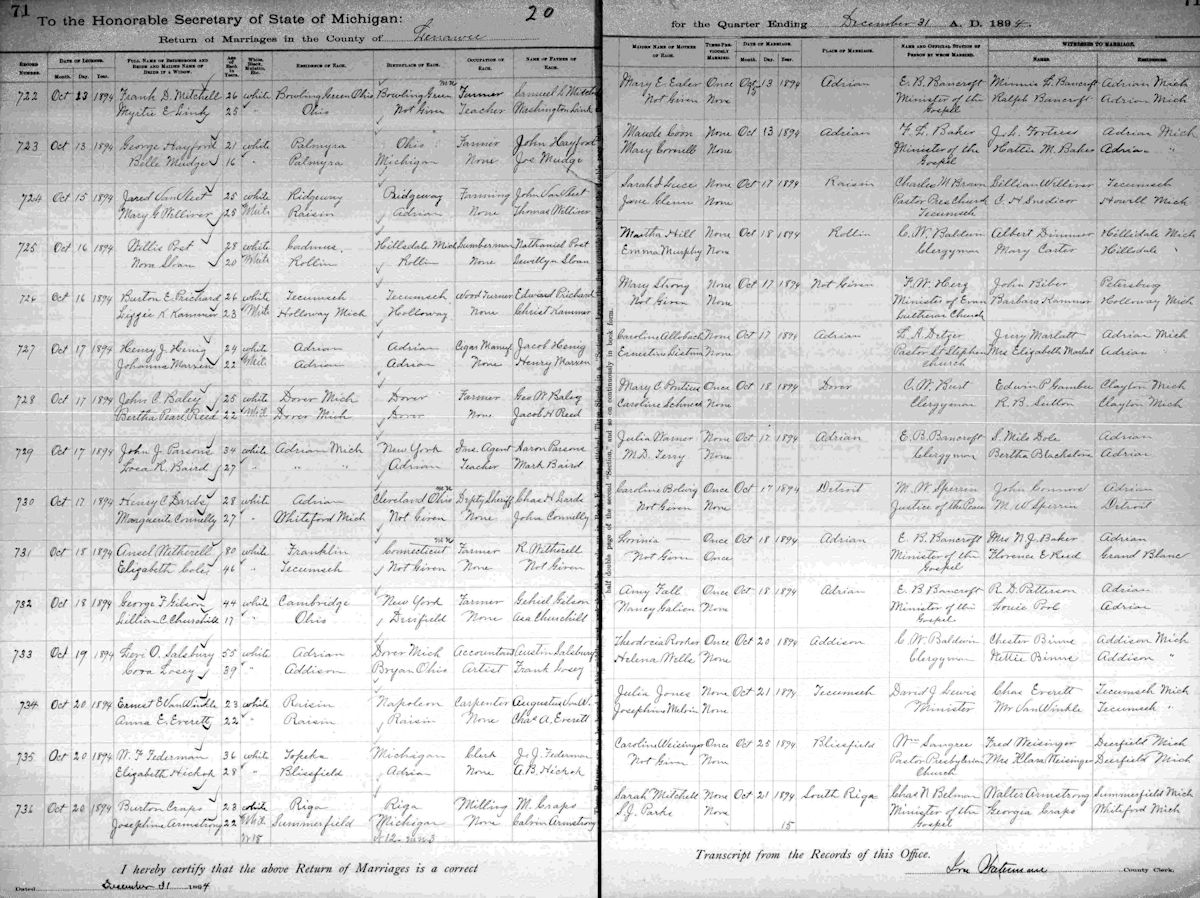 71
To the Honorable Secretary of State of Michigan:
20
Return of Marriages in the County of Lenawee
for the Quarter Ending December 31 A. D. 1894.
RECORD NUMBER. DATE OF LICENSE. Month. Day. Year. FULL NAME OF BRIDEGROOM AND BRIDE AND MAIDEN NAME OF BRIDE IF A WIDOW. Age of Each in Years. White, Black, Mulatto, Etc. RESIDENCE OF EACH. BIRTHPLACE OF EACH. OCCUPATION OF EACH. NAME OF FATHER OF EACH.
MAIDEN NAME OF MOTHER OF EACH. TIMES PREVIOUSLY MARRIED. DATE OF MARRIAGE. Month. Day. Year. PLACE OF MARRIAGE. NAME AND OFFICIAL STATION OF PERSON BY WHOM MARRIED. WITNESSES TO MARRIAGE. NAMES. RESIDENCES.
722 Oct 13 1894 Frank D. Mitchell 26 white Bowling Green Ohio Bowling Green Farmer Samuel L Mitchell
Myrtie E. Link 25 Ohio Not Given Teacher Washington Link
723 Oct 13 1894 George Hayford 21 white Palmyra Ohio Farmer John Hayford
Belle Mudge 16 " Palmyra Michigan None Joe Mudge
724 Oct 15 1894 Jared VanVleet 25 white Ridgeway Ridgeway Farming John VanVleet
Mary G Williver 25 White Raisin Adrian None Thomas Williver
725 Oct 16 1894 Willis Post 28 white Cadmus Hillsdale Mich Lumberman Nathaniel Post
Nora Sloan 20 White Rollin Rollin None Lewellyn Sloan
726 Oct 16 1894 Burton E. Prichard 26 white Tecumseh Tecumseh Wood Turner Edward Prichard
Lizzie K Kammer 23 White Holloway Mich Holloway None Christ Kammer
727 Oct 17 1894 Henry J. Henig 24 white Adrian Adrian Cigar Manuf Jacob Henig
Johanna Marven 22 White Adrian Adrian None Henry Marven
728 Oct 17 1894 John C. Baley 25 white Dover Mich Dover Farmer Geo W Baley
Bertha Pearl Reed 22 White Dover Mich Dover None Jacob H Reed
729 Oct 17 1894 John J. Parsons 34 white Adrian Mich New York Ins. Agent Aaron Parsons
Losa R. Baird 27 " " " Adrian Teacher Mark Baird
730 Oct 17 1894 Henry C. Dards 28 white Adrian Cleveland Ohio Dpty Sheriff Chas H Dards
Marguerite Connelly 27 " Whiteford Mich Not Given None John Connelly
731 Oct 18 1894 Ansel Witherell 80 white Franklin Connecticut Farmer R. Witherell
Elizabeth Cole 46 " Tecumseh Not Given None Not Given
732 Oct 18 1894 George F Gilson 44 white Cambridge New York Farmer Gehiel Gilson
Lillian C Churchill 17 " Ohio Deerfield None Asa Churchill
733 Oct 19 1894 Levi O. Salsbury 55 white Adrian Dover Mich Accountant Austin Salsbury
Cora Losey 39 " Addison Bryan Ohio Artist Frank Losey
734 Oct 20 1894 Ernest E VanWinkle 23 white Raisin Napoleon Carpenter Augustus Van W.
Anna E. Everett 22 " Raisin Raisin None Chas A. Everett
735 Oct 20 1894 W. F. Federman 36 white Topeka Michigan Clerk J. J. Federman
Elizabeth Hickok 28 " Blissfield Adrian None A. B. Hickok
736 Oct 20 1894 Burton Craps 23 white Riga Riga Milling M. Craps
Josephine Armstrong 22 White Summerfield Michigan None Calvin Armstrong
Mary E. Ealer Once Oct 13 1894 Adrian E. B. Bancroft Minnie L. Bancroft Adrian Mich
Not Given None Minister of the Gospel Ralph Bancroft Adrian Mich
Maude Coon None Oct 13 1894 Adrian F. L. Baker J. L. Fortress Adrian Mich
Mary Cornell None Minister of the Gospel Hattie M. Baker Adrian "
Sarah J Luce None Oct 17 1894 Raisin Charles M Brown Lillian Williver Tecumseh
Jane Glenn None Pastor Pres Church Tecumseh C. H Snedicor Howell Mich
Martha Hill None Oct 18 1894 Rollin C. W. Baldwin Albert Dimmer Hillsdale Mich
Emma Murphy None Clergyman Mary Carter Hillsdale "
Mary Strong None Oct 17 1894 Not Given F. W. Herz John Biber Petersburg
Not Given None Minister of Evan Lutheran Church Barbara Kammer Holloway Mich
Caroline Allobach None Oct 17 1894 Adrian L. A. Detzer Jerry Marlatt Adrian Mich
Ernestine None Pastor St Stephen Church Mrs Elizabeth Marlatt Adrian "
Mary C Pontius Once Oct 18 1894 Dover C. W. Burt Edwin P. Gambee Clayton Mich
Caroline Schneck None Clergyman R. B. Sutton Clayton Mich
Julia Warner None Oct 17 1894 Adrian E. B. Bancroft S. Milo Dole Adrian
M. D. Terry None Clergyman Bertha Blackstone Adrian
Caroline Bolwig Once Oct 17 1894 Detroit M. W Sperrin John Connors Adrian
Not Given None Justice of the Peace M. W Sperrin Detroit
Lovinia — Once Oct 18 1894 Adrian E. B. Bancroft Mrs N. J. Baker Adrian
Not Given Once Minister of the Gospel Florence E Reed Grand Blanc
Amy Fall Once Oct 18 1894 Adrian E. B Bancroft R. D. Patterson Adrian
Nancy Galien None Minister of this Gospel Louie Pool Adrian
Theodocia Rorker Once Oct 20 1894 Addison C. W Baldwin Chester Binns Addison Mich
Helena Wells None Clergyman Nettie Binns Addison "
Julia Jones None Oct 21 1894 Tecumseh David J. Lewis Chas Everett Tecumseh Mich
Josephine Melvin None Minister Mr VanWinkle Tecumseh "
Caroline Weisinger Once Oct 25 1894 Blissfield Wm Savgree Fred Weisinger Deerfield Mich
Not Given None Pastor Presbyterian Church Mrs Klara Weisinger Deerfield Mich
Sarah Mitchell None Oct 21 1894 South Riga Chas N Belman Walter Armstrong Summerfield Mich
S. J. Parks None Minister of the Gospel Georgia Craps Whiteford Mich
15
half double page of the second "Section," and so on continuously in book form.
I hereby certify that the above Return of Marriages is a correct
Transcript from the Records of this Office.
Dated December 31 1894
Ira Waterman County Clerk.